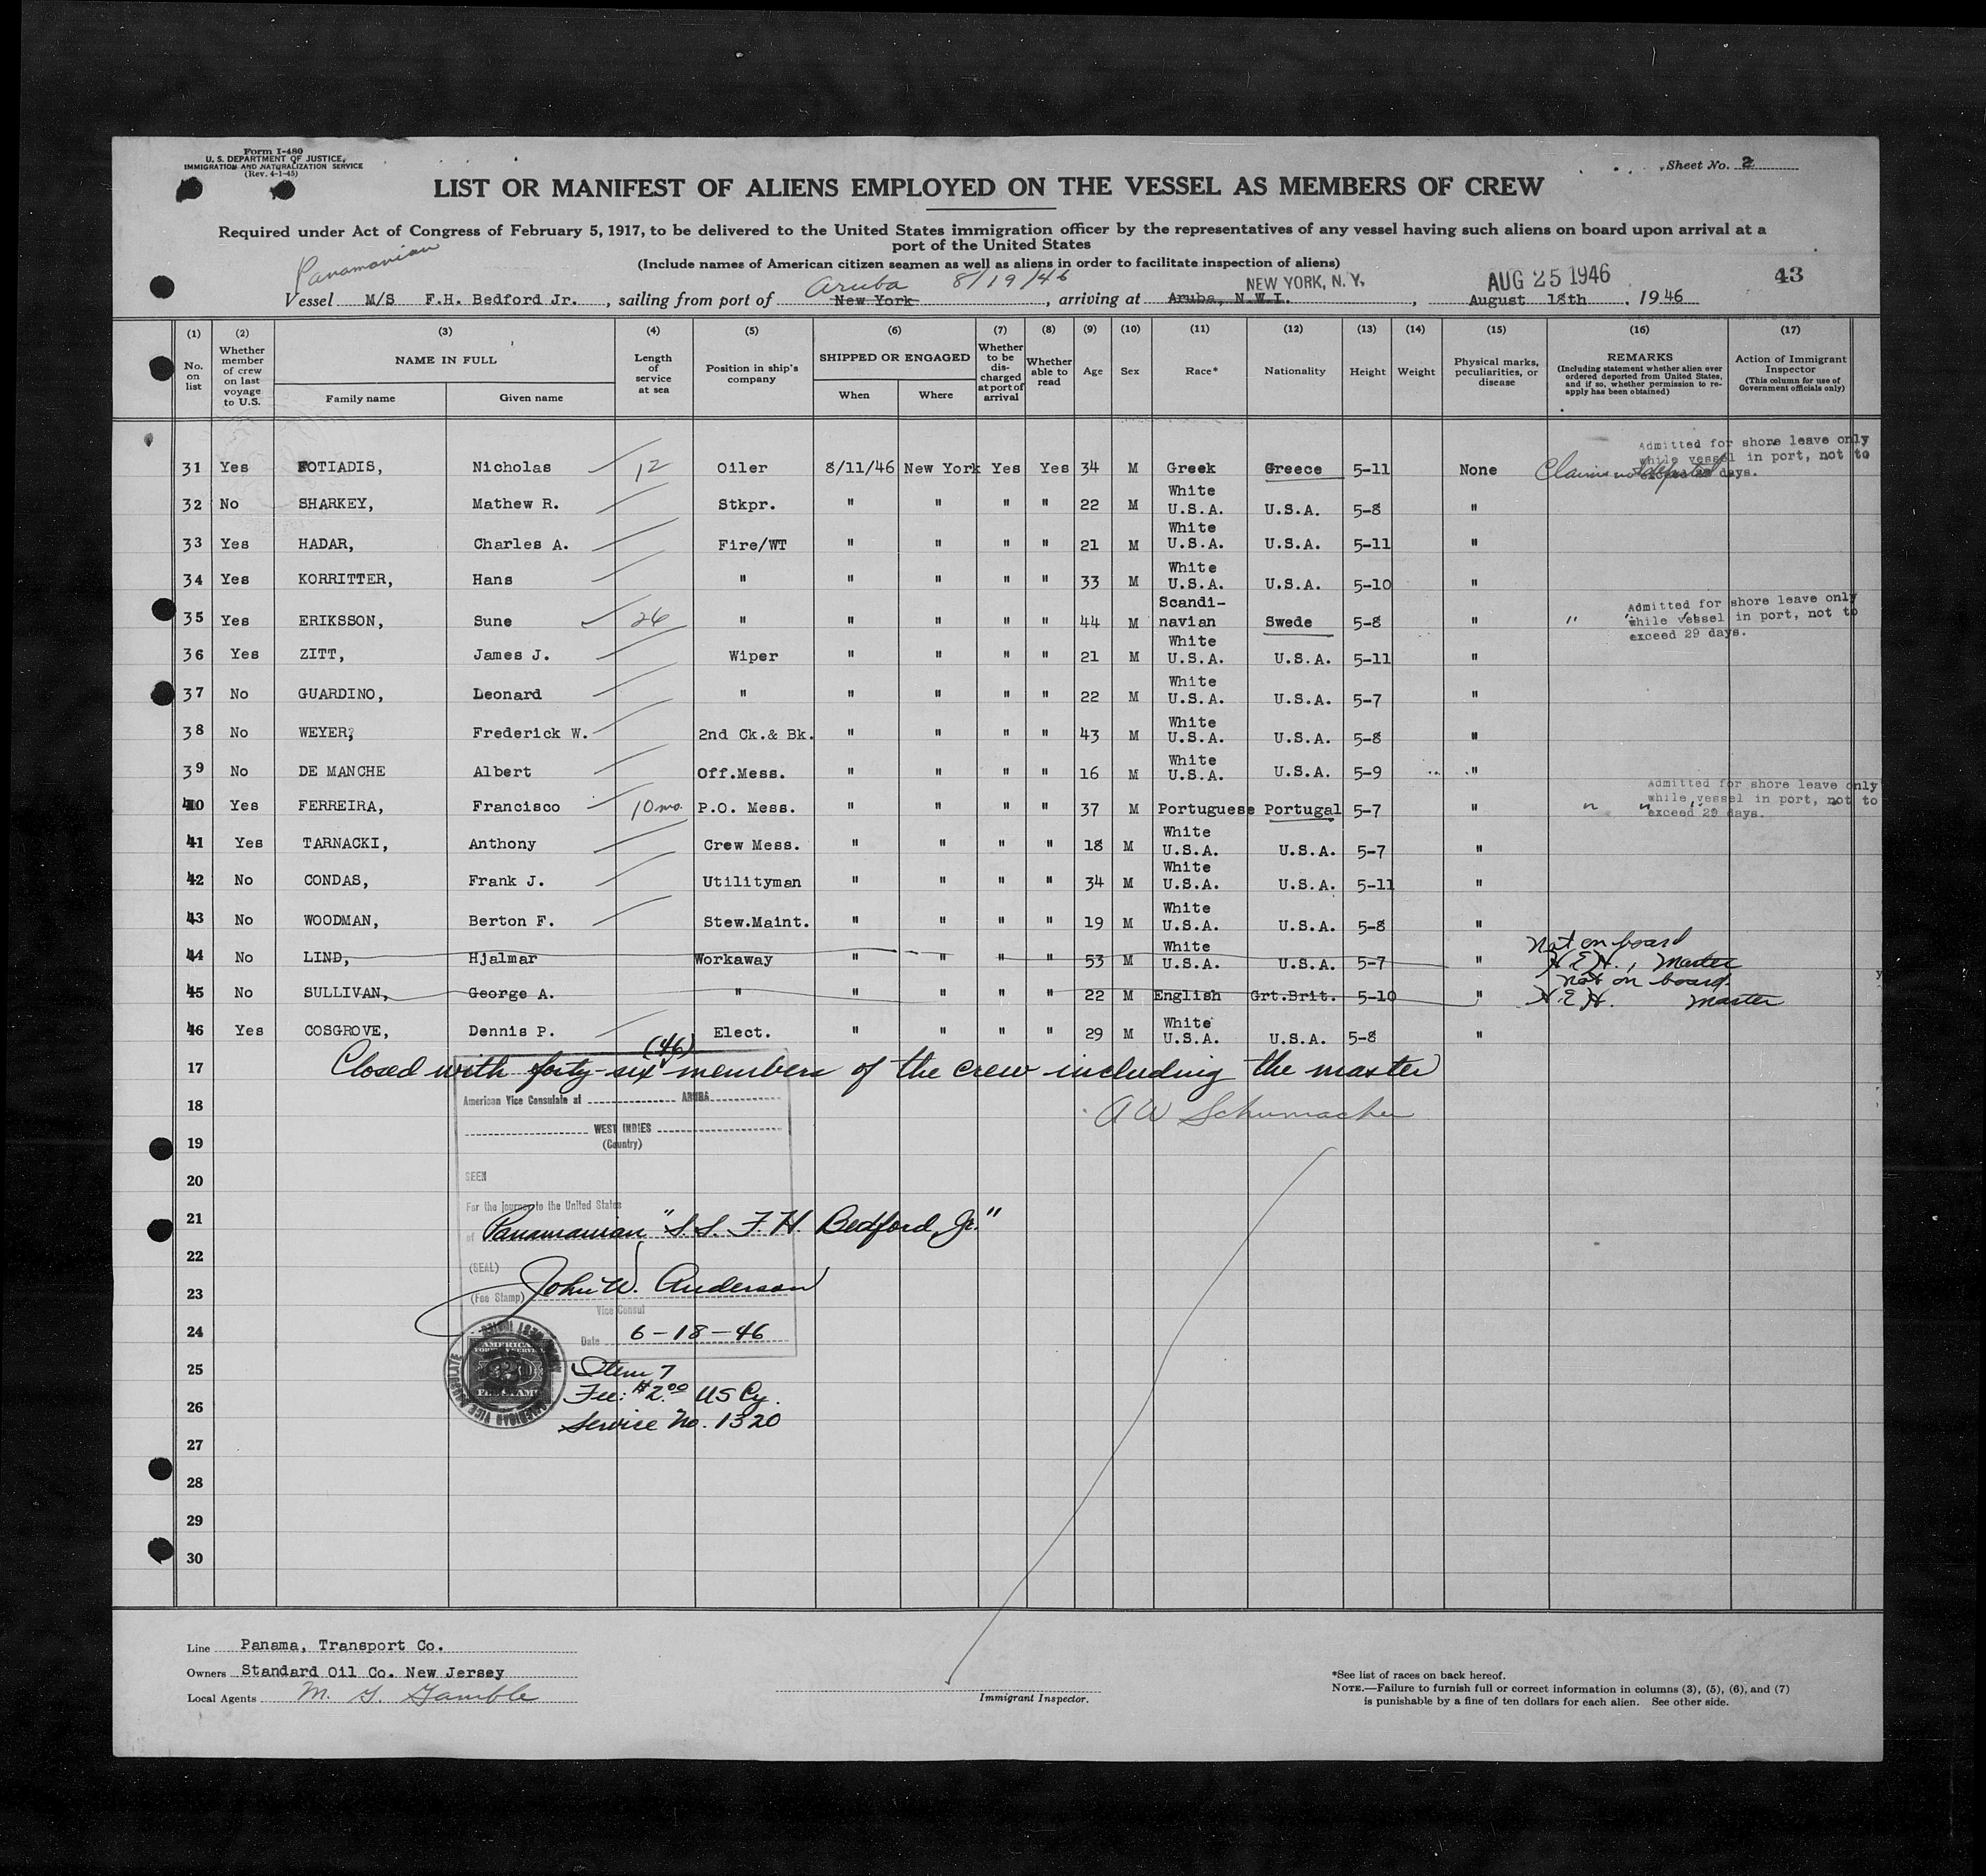 Form I-480
U. S. DEPARTMENT OF JUSTICE,
IMMIGRATION AND NATURALIZATION SERVICE
(Rev. 4-1-45)
Sheet No. 2
LIST OR MANIFEST OF ALIENS EMPLOYED ON THE VESSEL AS MEMBERS OF CREW
Required under Act of Congress of February 5, 1917, to be delivered to the United States immigration officer by the representatives of any vessel having such aliens on board upon arrival at a
port of the United States
(Include names of American citizen seamen as well as aliens in order to facilitate inspection of aliens)
Panamanian
Aruba 8/19/46 NEW YORK, N. Y. AUG 25 1946 43
Vessel M/S F.H. Bedford Jr. , sailing from port of New York , arriving at Aruba, N.W.I. , August 18th , 1946
(1) No. on list
(2) Whether member of crew on last voyage to U.S.
(3) NAME IN FULL Family name Given name
(4) Length of service at sea
(5) Position in ship's company
(6) SHIPPED OR ENGAGED When Where
(7) Whether to be discharged at port of arrival
(8) Whether able to read
(9) Age
(10) Sex
(11) Race*
(12) Nationality
(13) Height
(14) Weight
(15) Physical marks, peculiarities, or disease
(16) REMARKS (Including statement whether alien ever ordered deported from United States, and if so, whether permission to re-apply has been obtained)
(17) Action of Immigrant Inspector (This column for use of Government officials only)
31 Yes FOTIADIS, Nicholas 12 Oiler 8/11/46 New York Yes Yes 34 M Greek Greece 5-11 None Claims not deported Admitted for shore leave only while vessel in port, not to exceed 29 days.
32 No SHARKEY, Mathew R. Stkpr. " " " " 22 M White U.S.A. U.S.A. 5-8 "
33 Yes HADAR, Charles A. Fire/WT " " " " 21 M White U.S.A. U.S.A. 5-11 "
34 Yes KORRITTER, Hans " " " " " 33 M White U.S.A. U.S.A. 5-10 "
35 Yes ERIKSSON, Sune 26 " " " " " 44 M Scandinavian Swede 5-8 " " " Admitted for shore leave only while vessel in port, not to exceed 29 days.
36 Yes ZITT, James J. Wiper " " " " 21 M White U.S.A. U.S.A. 5-11 "
37 No GUARDINO, Leonard " " " " " 22 M White U.S.A. U.S.A. 5-7 "
38 No WEYER, Frederick W. 2nd Ck.& Bk. " " " " 43 M White U.S.A. U.S.A. 5-8 "
39 No DE MANCHE Albert Off.Mess. " " " " 16 M White U.S.A. U.S.A. 5-9 "
40 Yes FERREIRA, Francisco 10 mo. P.O. Mess. " " " " 37 M Portuguese Portugal 5-7 " " " Admitted for shore leave only while vessel in port, not to exceed 29 days.
41 Yes TARNACKI, Anthony Crew Mess. " " " " 18 M White U.S.A. U.S.A. 5-7 "
42 No CONDAS, Frank J. Utilityman " " " " 34 M White U.S.A. U.S.A. 5-11 "
43 No WOODMAN, Berton F. Stew.Maint. " " " " 19 M White U.S.A. U.S.A. 5-8 "
44 No LIND, Hjalmar Workaway " " " " 53 M White U.S.A. U.S.A. 5-7 " Not on board H.E.H., Master
45 No SULLIVAN, George A. " " " " " 22 M English Grt.Brit. 5-10 " Not on board H.E.H. Master
46 Yes COSGROVE, Dennis P. Elect. " " " " 29 M White U.S.A. U.S.A. 5-8 "
(46)
17 Closed with forty-six members of the crew including the master
American Vice Consulate at ARUBA
18 A W Schumacher
WEST INDIES
19 (Country)
20 SEEN
For the journey to the United States
21 of Panamanian "S.S. F. H. Bedford, Jr."
22
(SEAL)
23 (Fee Stamp) John W. Anderson
Vice Consul
24 Date 6-18-46
25 Item 7
Fee: $2.00 US Cy.
26 Service No. 1320
AMERICAN VICE CONSULATE
27
28
29
30
Line Panama, Transport Co.
Owners Standard Oil Co. New Jersey
Local Agents M. G. Gamble
Immigrant Inspector.
*See list of races on back hereof.
NOTE.—Failure to furnish full or correct information in columns (3), (5), (6), and (7)
is punishable by a fine of ten dollars for each alien. See other side.